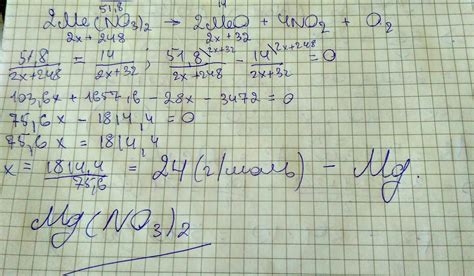 51,8 14
2Me(NO3)2 → 2MeO + 4NO2 + O2
2x+248 2x+32
51,8/2x+248 = 14/2x+32; 51,8\2x+32/2x+248 - 14\2x+248/2x+32 = 0
103,6x + 1657,6 - 28x - 3472 = 0
75,6x - 1814,4 = 0
75,6x = 1814,4
x = 1814,4/75,6 = 24 (г/моль) - Mg.
Mg(NO3)2